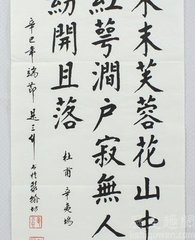 木末芙蓉花山中
紅萼澗户寂無人
紛開且落
杜甫 辛夷塢
辛巳年端節